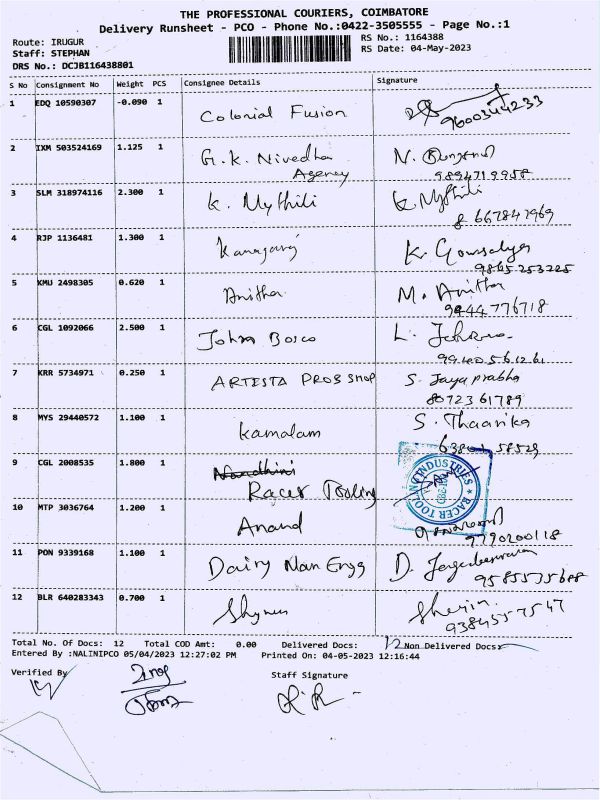 THE PROFESSIONAL COURIERS, COIMBATORE
Delivery Runsheet - PCO - Phone No.:0422-3505555 - Page No.:1
Route: IRUGUR
RS No.: 1164388
Staff: STEPHAN
RS Date: 04-May-2023
DRS No.: DCJB116438801
S No Consignment No Weight PCS Consignee Details Signature
1 EDQ 10590307 -0.090 1 Colonial Fusion
9600344233
2 IXM 503524169 1.125 1 G.K. Nivedha N.
Agency 9894719958
3 SLM 318974116 2.300 1 K. Mythili K. Mythili
8667847969
4 RJP 1136481 1.300 1 Kanagaraj K. Gowsalya
9865253225
5 KMU 2498305 0.620 1 Anitha M. Anitha
9444776718
6 CGL 1092066 2.500 1 John Bosco L.
99405561261
7 KRR 5734971 0.250 1 ARTESTA PROB SHOP S. Jayaprabha
8072361789
8 MYS 29440572 1.100 1 Kamalam S. Thaarika
58529
9 CGL 2008535 1.800 1 Nandhini
Racer Tooling
RACER TOOLING INDUSTRIES
10 MTP 3036764 1.200 1 Anand
9790200118
11 PON 9339168 1.100 1 Dairy Man Engg D.
9585535688
12 BLR 640283343 0.700 1 Sherin
9384557547
Total No. Of Docs: 12 Total COD Amt: 0.00 Delivered Docs: 12 Non Delivered Docs:
Entered By :NALINIPCO 05/04/2023 12:27:02 PM Printed On: 04-05-2023 12:16:44
Verified By Staff Signature